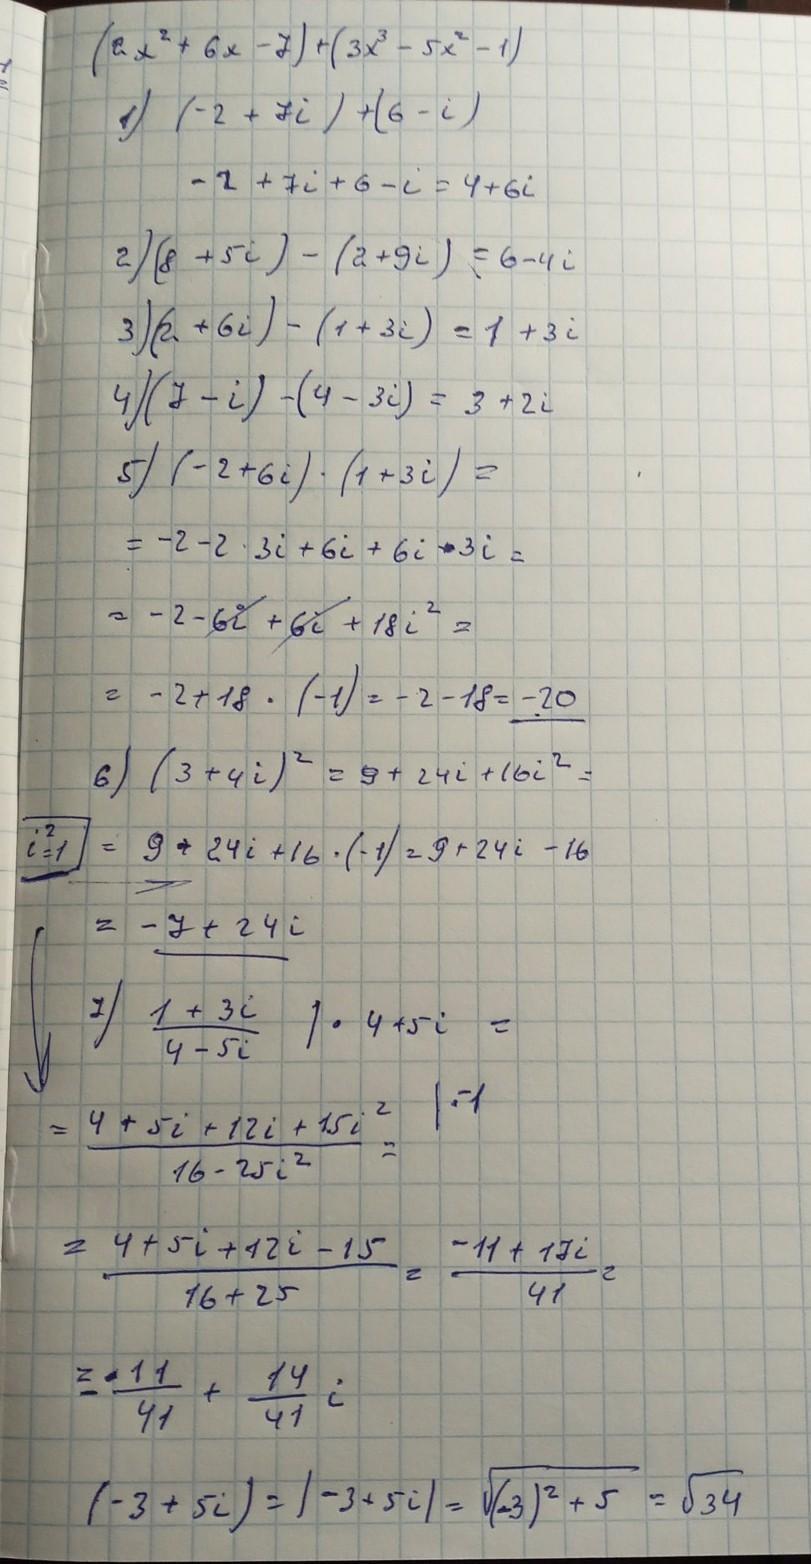 (2x² + 6x - 7) + (3x³ - 5x² - 1)
1) (-2 + 7i) + (6 - i)
-2 + 7i + 6 - i = 4 + 6i
2) (8 + 5i) - (2 + 9i) = 6 - 4i
3) (2 + 6i) - (1 + 3i) = 1 + 3i
4) (7 - i) - (4 - 3i) = 3 + 2i
5) (-2 + 6i) · (1 + 3i) =
= -2 - 2 · 3i + 6i + 6i · 3i =
= -2 - 6i + 6i + 18i² =
= -2 + 18 · (-1) = -2 - 18 = -20
6) (3 + 4i)² = 9 + 24i + 16i² =
i² = 1 = 9 + 24i + 16 · (-1) = 9 + 24i - 16
= -7 + 24i
7) (1 + 3i)/(4 - 5i) | · 4 + 5i =
= (4 + 5i + 12i + 15i²)/(16 - 25i²) =
= (4 + 5i + 12i - 15)/(16 + 25) = (-11 + 17i)/41 =
= -11/41 + 14/41 i
(-3 + 5i) = |-3 + 5i| = √((-3)² + 5) = √34